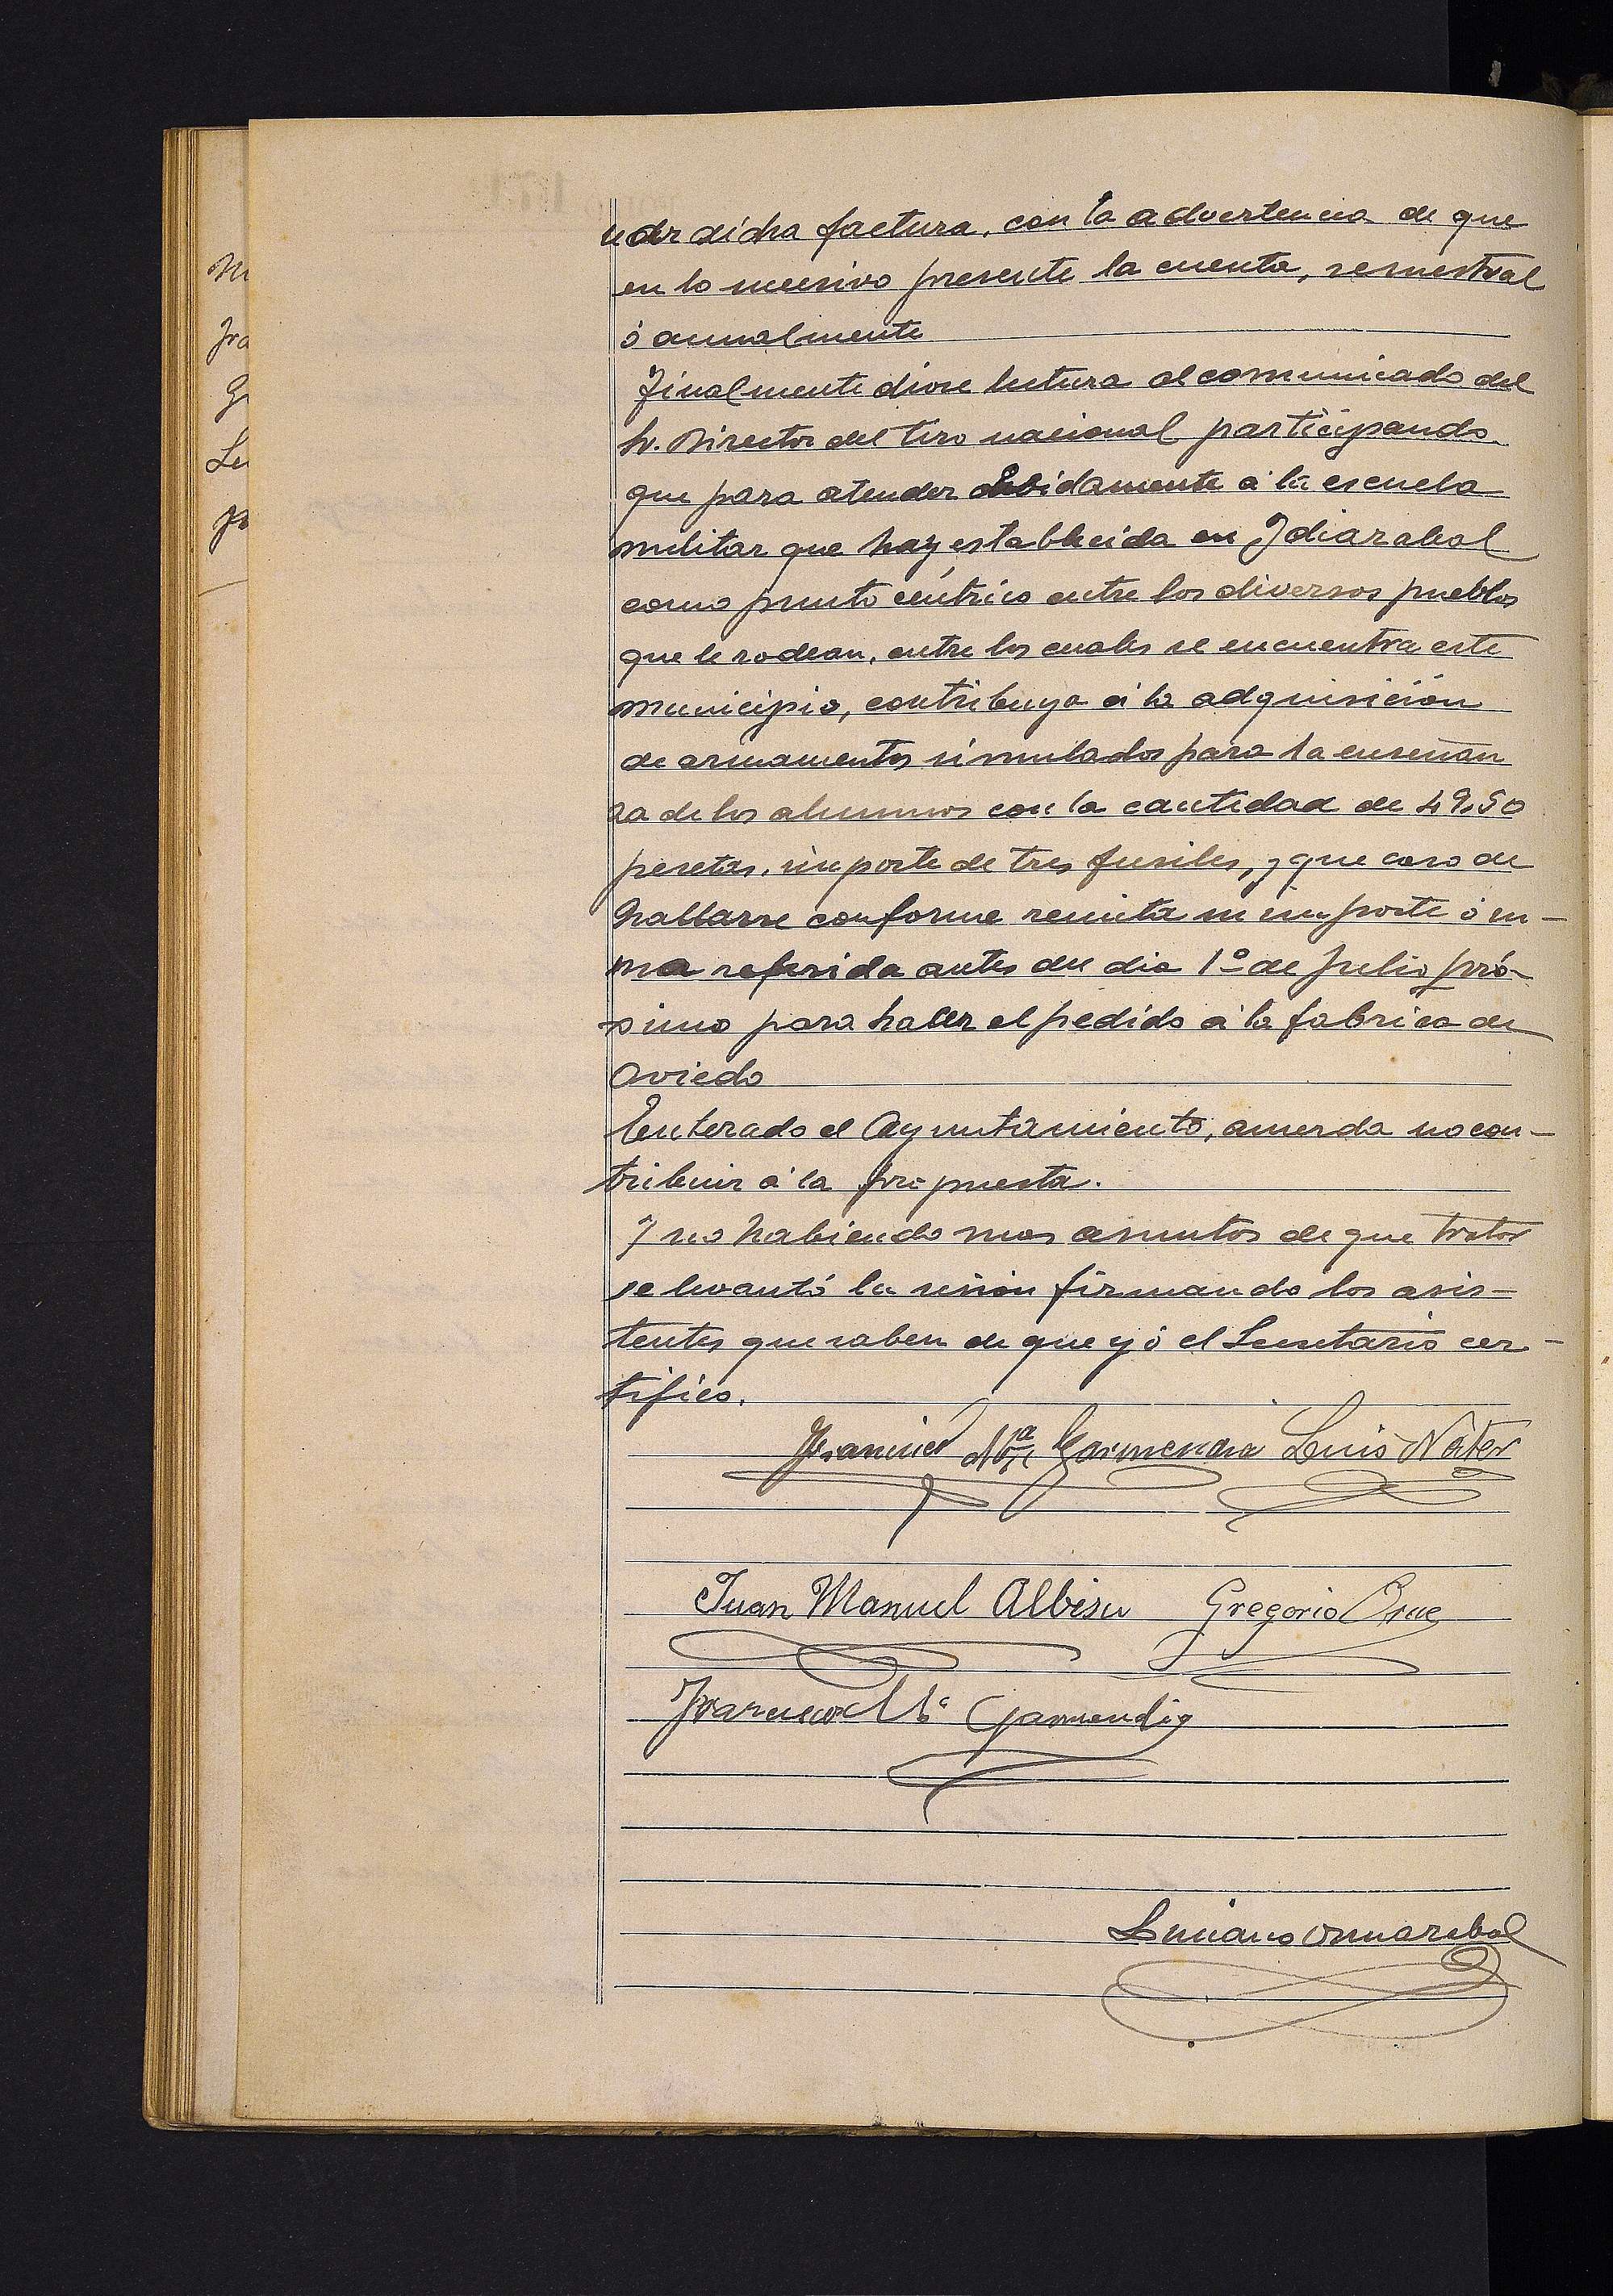 nder dicha factura, con la advertencia de que
en lo sucesivo presente la cuenta, semestral
ó anualmente
Finalmente diose lectura al comunicado del
Sr. Director del tiro nacional participando
que para atender debidamente á la escuela
militar que hay establecida en Idiazabal
como punto céntrico entre los diversos pueblos
que le rodean, entre los cuales se encuentra este
municipio, contribuya á la adquisición
de armamentos simulados para la enseñan
za de los alumnos con la cantidad de 49,50
pesetas, importe de tres fusiles, y que caso de
hallarse conforme remita su importe ó su-
ma referida antes del dia 1º de Julio pró-
ximo para hacer el pedido á la fabrica de
Oviedo
Enterado el Ayuntamiento, acuerda no con-
tribuir á la propuesta.
Y no habiendo mas asuntos de que tratar
se levantó la sesión firmando los asis-
tentes que saben de que yó el Secretario cer-
tifico.
Francisco Mª Garmendia Luis Náter
Juan Manuel Albisu Gregorio
Francisco Mª Garmendia
Luciano Ormazabal
M
Fra
Gr
Lu